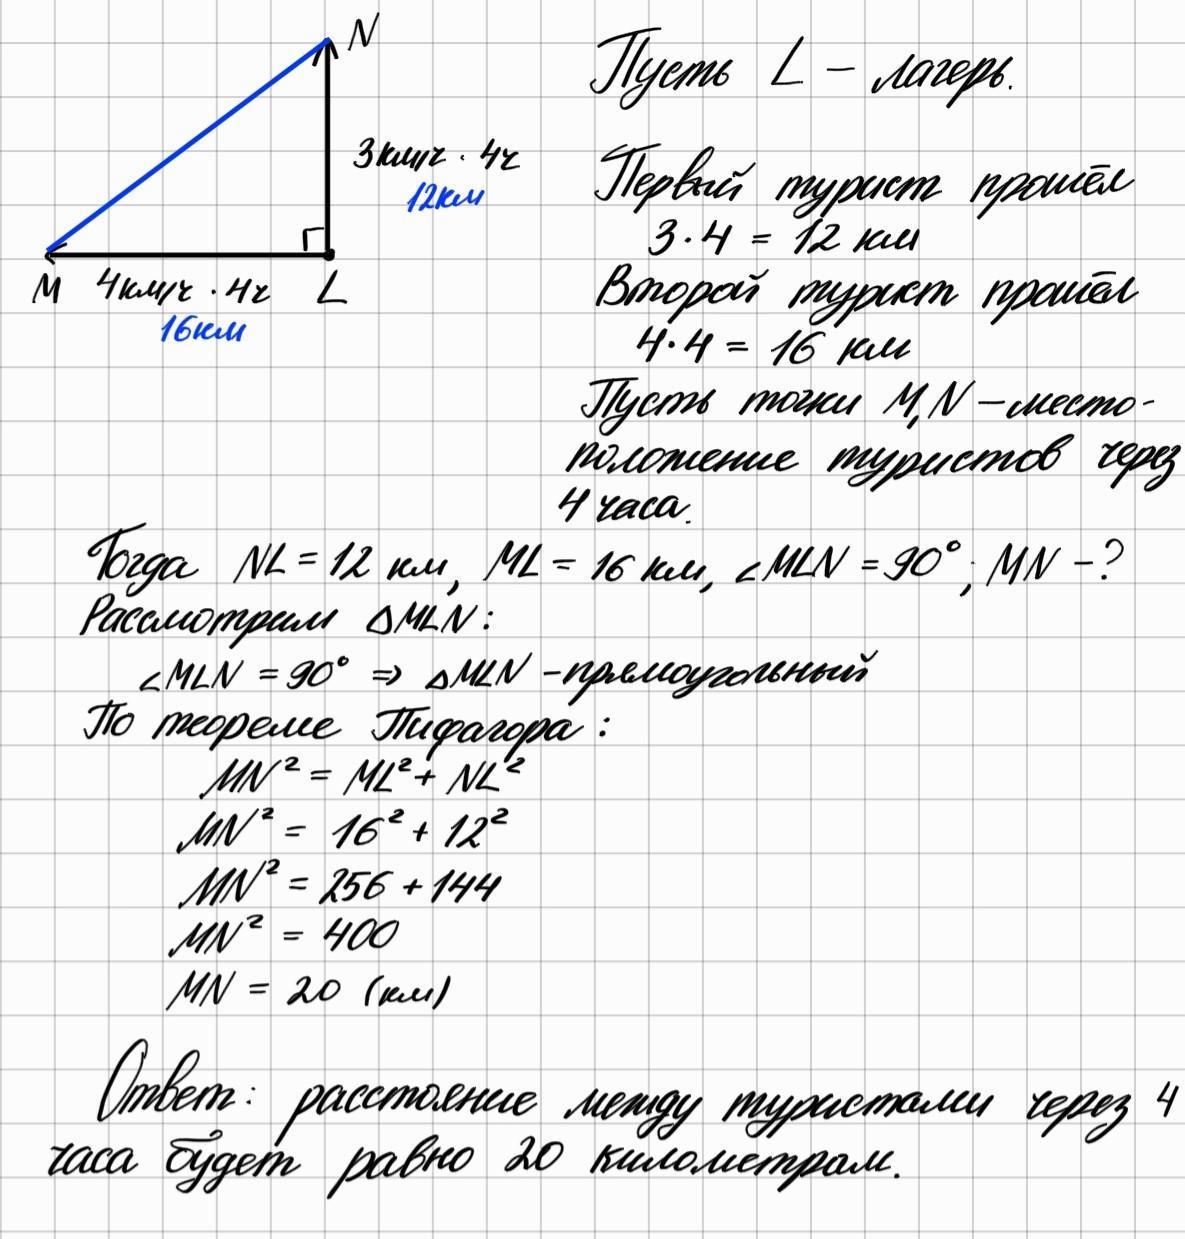 N
3км/ч · 4ч
12км
M 4км/ч · 4ч L
16км
Пусть L – лагерь.
Первый турист прошёл
3·4 = 12 км
Второй турист прошёл
4·4 = 16 км
Пусть точки M,N – место-
положение туристов через
4 часа.
Тогда NL = 12 км, ML = 16 км, ∠MLN = 90°; MN – ?
Рассмотрим △MLN:
∠MLN = 90° ⇒ △MLN – прямоугольный
По теореме Пифагора:
MN² = ML² + NL²
MN² = 16² + 12²
MN² = 256 + 144
MN² = 400
MN = 20 (км)
Ответ: расстояние между туристами через 4
часа будет равно 20 километрам.